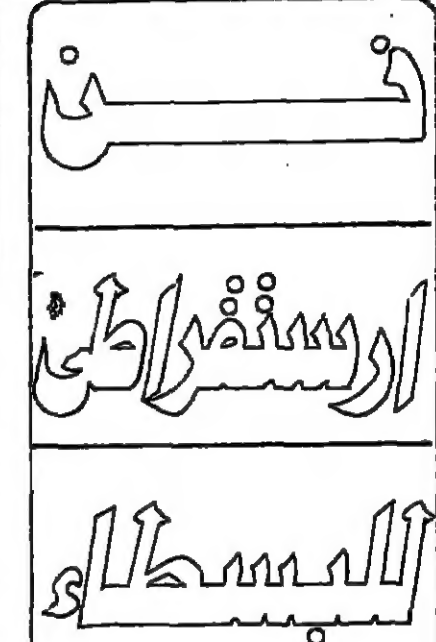 فن
ارستقراطى
البسطاء